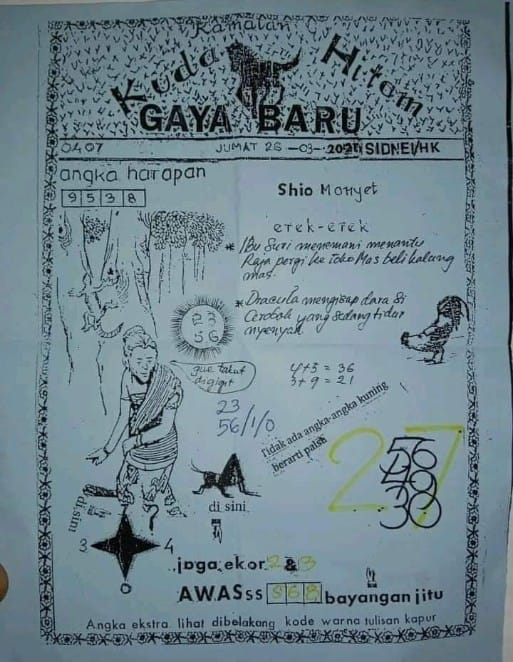 Ramalan
Kuda Hitam
GAYA BARU
0407 JUMAT 26-03-2021 SIDNEI/HK
angka harapan
9 5 3 8
Shio Monyet
erek-erek
* Ibu Suri menemani menantu
Raja pergi ke toko Mas beli kalung
mas.
* Dracula mengisap dara Si
Cerobok yang sedang tidur
nyenyak
23
56
gue takut
digigit
4+3 = 36
3+9 = 21
23
56/1/0
Tidak ada angka-angka kuning
berarti palsu
27
56
49
30
di sini
di sini
3 4
0
jaga ekor 2 & 3
AWASss 968 bayangan jitu
Angka ekstra lihat dibelakang kode warna tulisan kapur